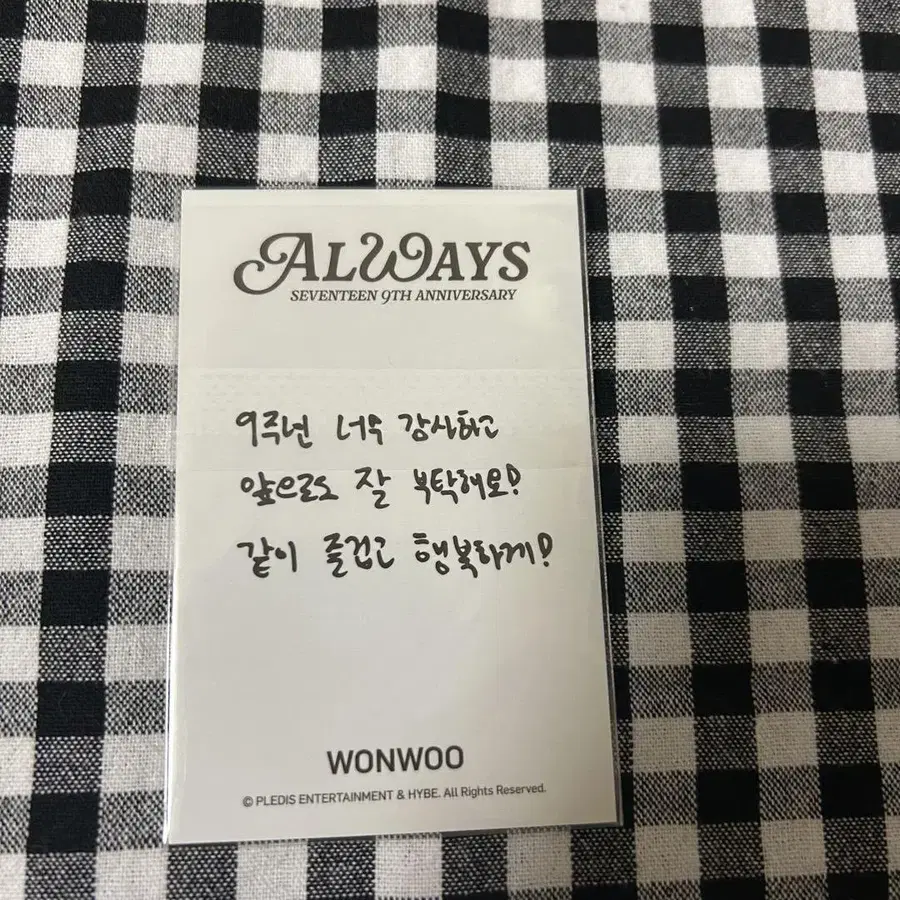 ALWAYS
SEVENTEEN 9TH ANNIVERSARY
9주년 너무 감사하고
앞으로도 잘 부탁해요!
같이 즐겁고 행복하게!
WONWOO
© PLEDIS ENTERTAINMENT & HYBE. All Rights Reserved.